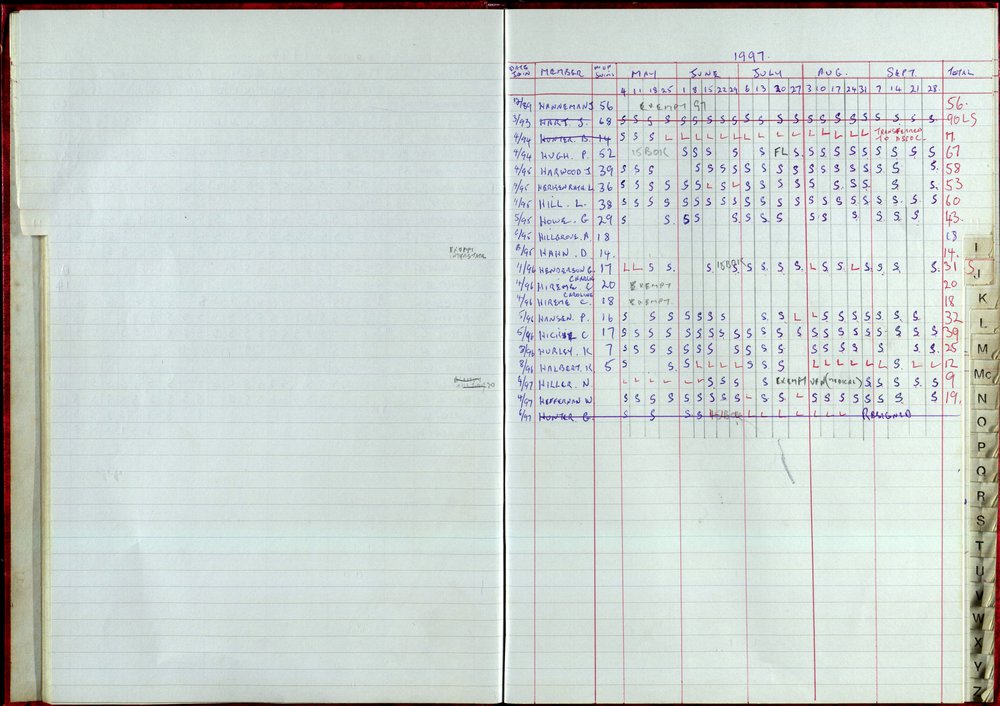 EXEMPT
INTERSTATE
1997.
DATE JOIN MEMBER Nº OF SWIMS MAY JUNE JULY AUG. SEPT TOTAL
4 11 18 25 1 8 15 22 29 6 13 20 27 3 10 17 24 31 7 14 21 28
12/89 HANNEMAN J 56 EXEMPT 97 56.
3/93 HART. J. 68 S S S S S S S S S S S S S S S S S S S S S S 90 LS
4/94 HUNTER. B. 14 S S S L L L L L L L L L L L L L L L TRANSFERRED TO ASSOC. 17.
4/94 HUGH. P. 52 ISBOK S S S S S FL S. S S S S S S S S S 67
4/95 HARWOOD J 39 S S S S S S S S S S S S S S S S S S S. 58
4/95 L. 36 S S S S S S L S L S S S S S S S S S S. 53
4/95 HILL. L. 38 S S S S S S S S S S S S S S S S S S S S S S 60
5/95 HOWE. G 29 S S. S S S S S S S S S S S S 43.
6/95 HILLGROVE. A. 18 18
HAHN. D 14. 14.
4/96 HENDERSON G. CHARLIE 17 L L S S. S ISBOK S. S S S S. L S S L S S S S. 31 S.
4/96 HIREME C 20 EXEMPT 20
CAROLINE
4/96 HIREME C. 18 EXEMPT. 18
5/96 HANSEN. P. 16 S S S S S S S S S S L L S S S S S S S 32
5/96 C. 17 S S S S S S S S S S S S S S S S S S S S S S 39
HURLEY. K 7 S S S S S S S S S S S S S S S S S S. 25
8/96 HALBERT. K 5 S S. S L L L L S S S L L L L L L S L L 12
4/97 HILLER. N L L L L L L S S S S EXEMPT (MEDICAL) S S S S S 9
4/97 HEFFERNAN W S S S S S S S S L S S L S S S S S S S S S 19.
6/97 HUNTER G. S S S S ISBOK L L L L L L L RESIGNED
I
J
K
L
M
Mc
N
O
P
Q
R
S
T
U
V
W
X
Y
Z